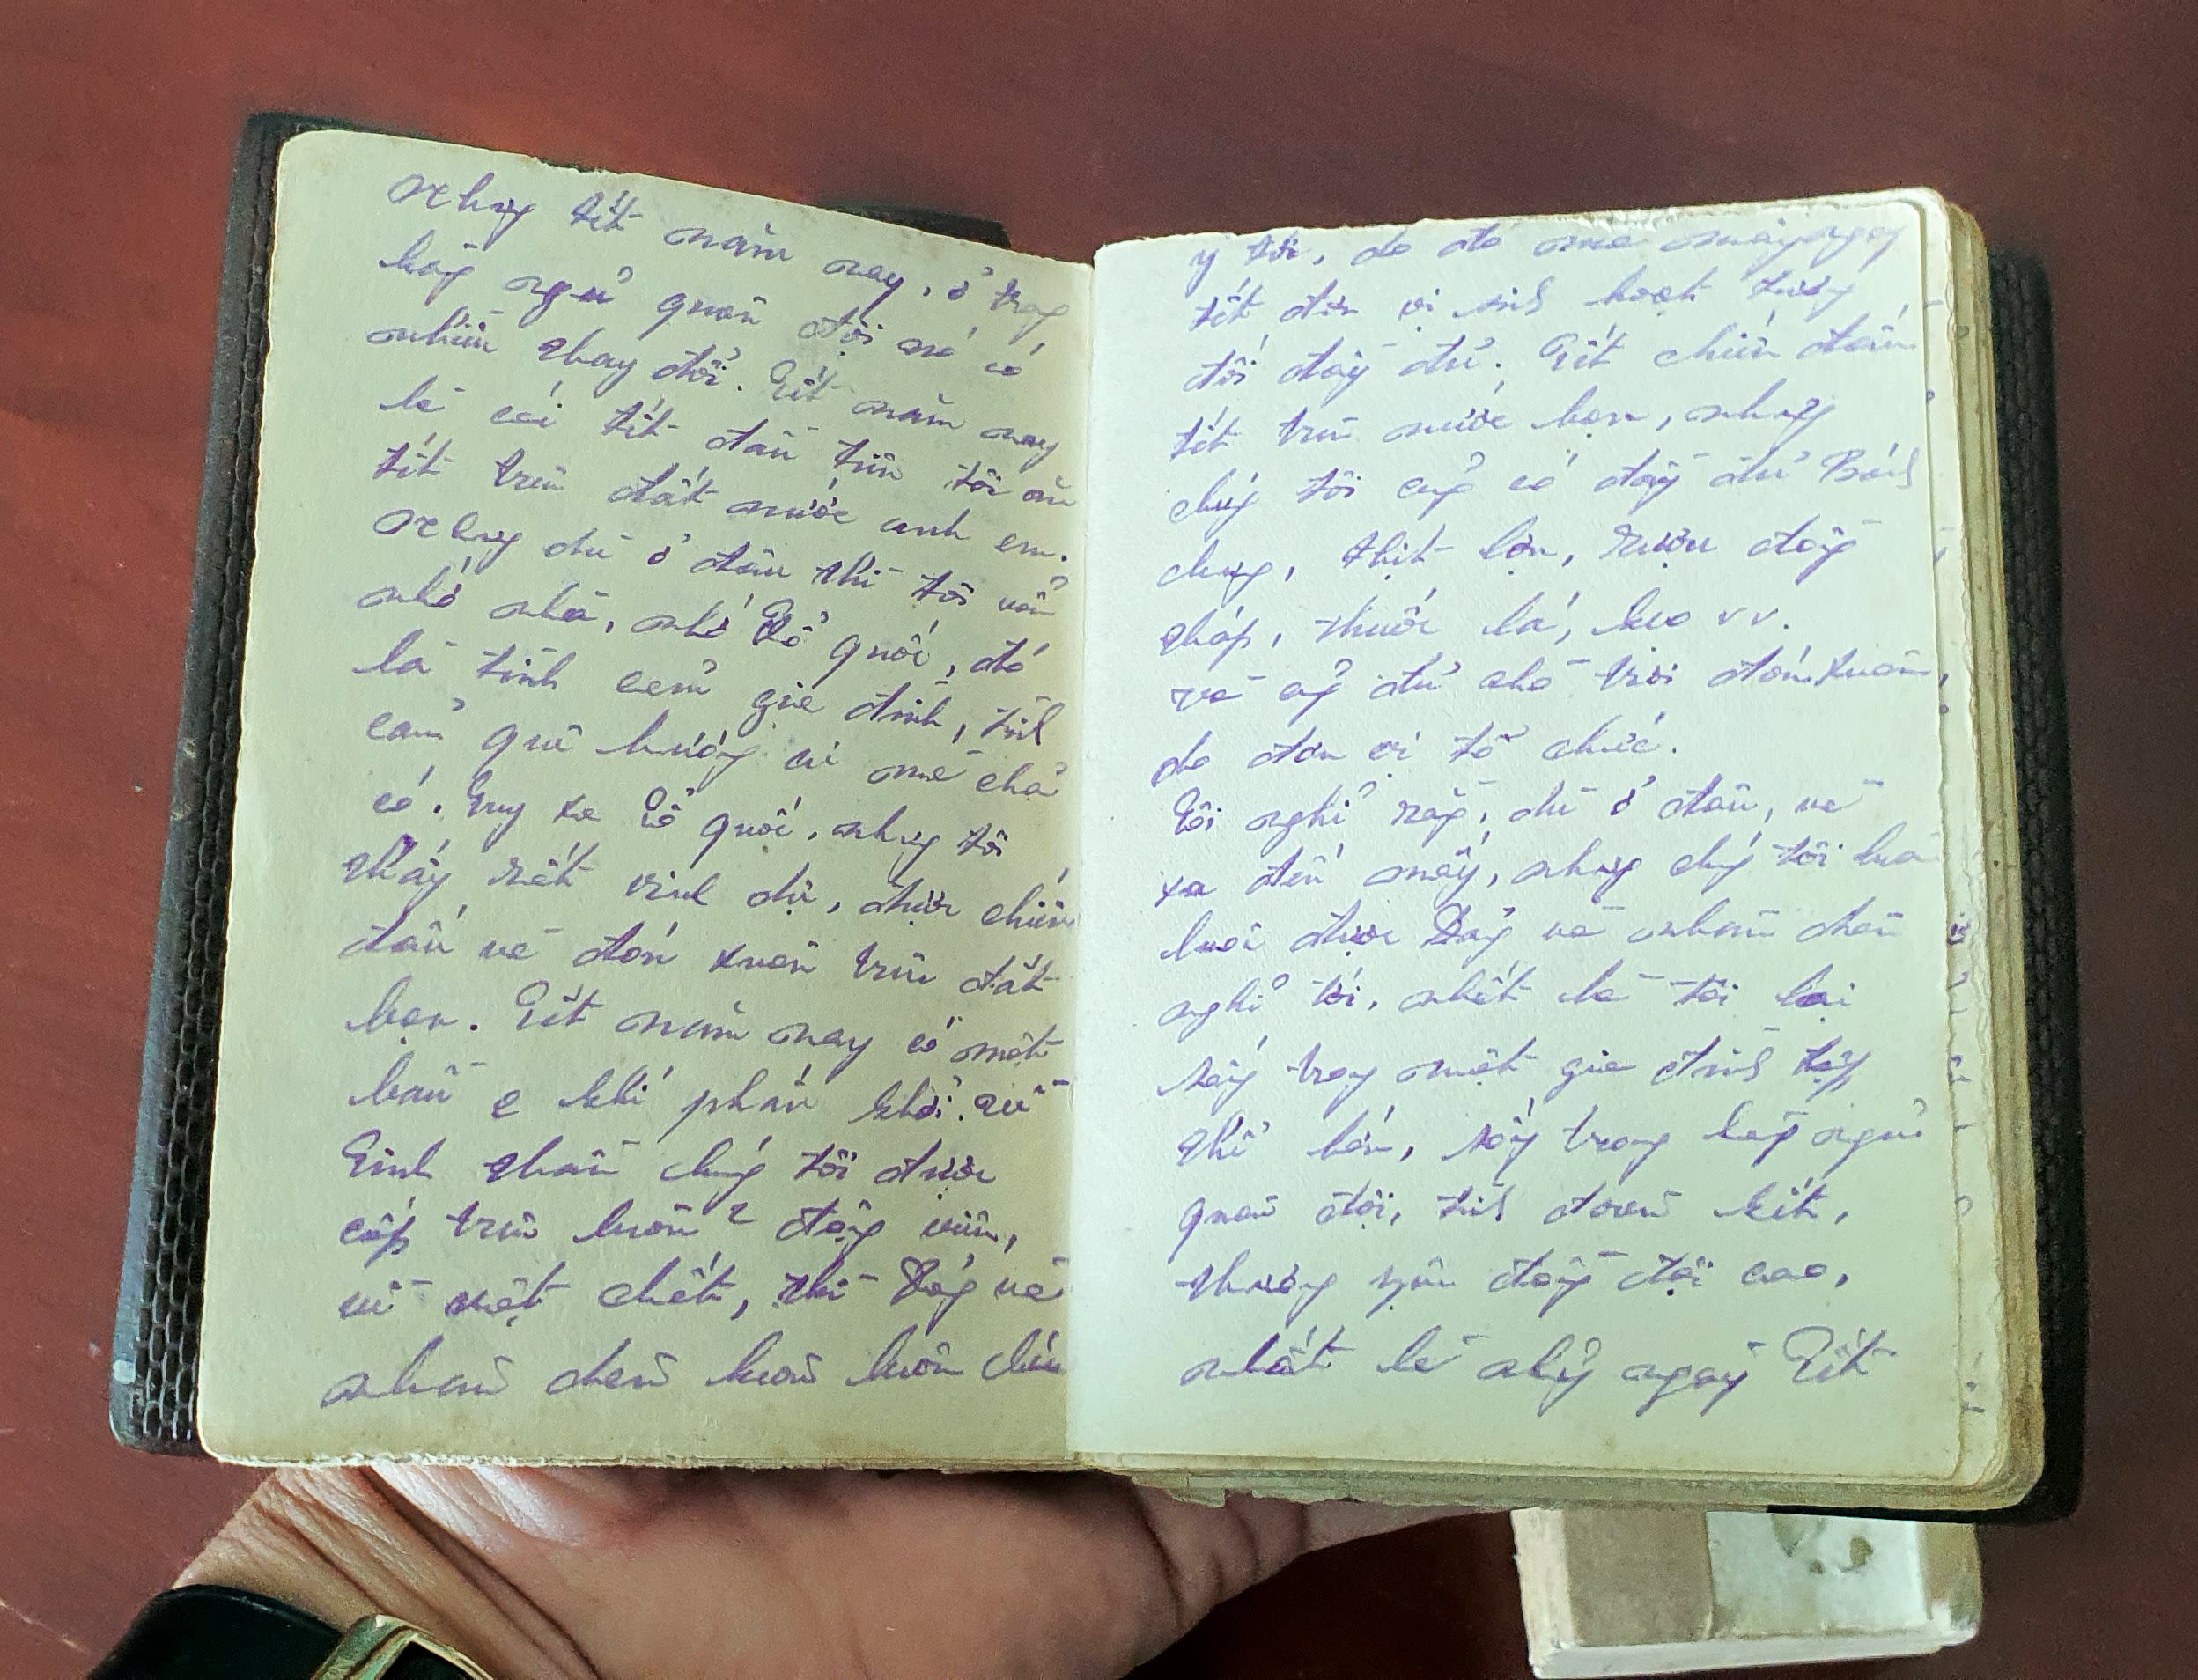 Nhưg tết năm nay, ở trog
hàg ngũ quân đội nó có
nhiều thay đổi. Tết năm nay
là cái tết đầu tiên tôi ăn
tết trên đất nước anh em.
Nhưg dù ở đâu thì tôi vẫn
nhớ nhà, nhớ Tổ quốc, đó
là tình cảm gia đình, tìnhh
cảm quê hươg ai mà chả
có. Tuy xa Tổ quốc, nhưg tôi
thấy rất vinh dự, được chiến
đấu và đón xuân trên đất
bạn. Tết năm nay có một
bầu k khí phấn khởi. Về
Tinh thần chúg tôi được
cấp trên luôn 2 độg viên,
về vật chất, thì Đảg và
nhân dân luôn luôn chú
ý tới, do đó mà mấy ngày
tết đơn vị sinh hoạt tươg
đối đầy đủ. Tết chiến đấu
tết trên nước bạn, nhưg
chúg tôi cũg có đầy đủ Bánh
chưg, thịt lợn, rượu đồg
tháp, thuốc lá, kẹo vv.
và cũg đủ chò trơi đón xuân,
do đơn vị tổ chức.
Tôi nghĩ rằg, dù ở đâu, và
xa đến mấy, nhưg chúg tôi luôn
luôn được Đảg và nhân dân
nghĩ tới, nhất là tôi lại
sốg trog một gia đình tập
thể lớn, sốg trong hàg ngũ
quân đội, tình đoàn kết,
thươg yêu đồg đội cao,
nhất là nhữg ngày Tết